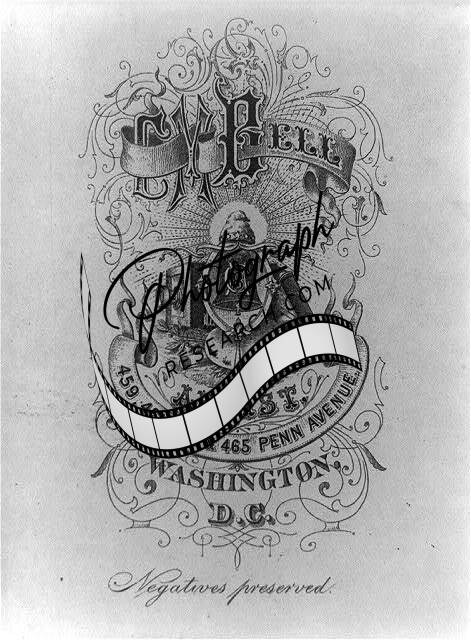 CM Bell
Photograph
RESEARCH.COM
459
465 PENN AVENUE.
WASHINGTON.
D.C.
Negatives preserved.